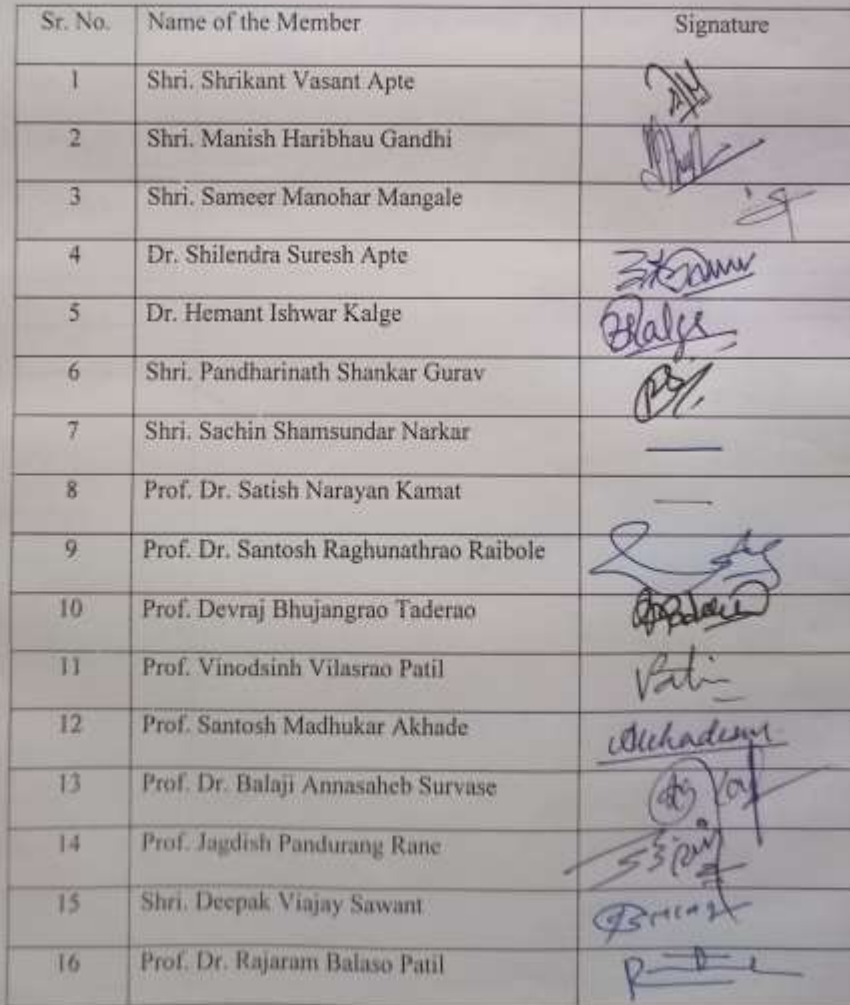 Sr. No. Name of the Member Signature
1 Shri. Shrikant Vasant Apte
2 Shri. Manish Haribhau Gandhi
3 Shri. Sameer Manohar Mangale
4 Dr. Shilendra Suresh Apte
5 Dr. Hemant Ishwar Kalge
6 Shri. Pandharinath Shankar Gurav
7 Shri. Sachin Shamsundar Narkar —
8 Prof. Dr. Satish Narayan Kamat —
9 Prof. Dr. Santosh Raghunathrao Raibole
10 Prof. Devraj Bhujangrao Taderao
11 Prof. Vinodsinh Vilasrao Patil
12 Prof. Santosh Madhukar Akhade
13 Prof. Dr. Balaji Annasaheb Survase
14 Prof. Jagdish Pandurang Rane
15 Shri. Deepak Viajay Sawant
16 Prof. Dr. Rajaram Balaso Patil